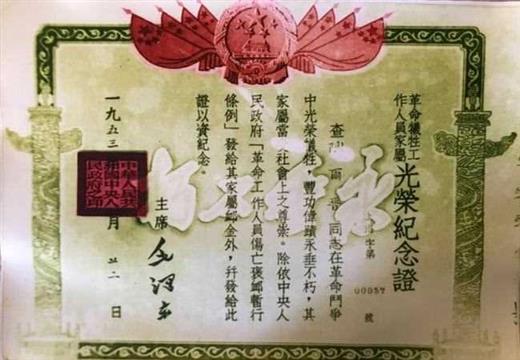 革命犧牲工
作人員家屬
光榮紀念證
字第 00057 號
查 爾 同志在革命鬥爭
中光榮犧牲,豐功偉蹟永垂不朽,其
家屬當 社會上之尊崇。除依中央人
民政府「革命工作人員傷亡褒卹暫行
條例」發給其家屬卹金外,幷發給此
證以資紀念。
主席 毛澤東
一九五三 月廿二日
中華人民共
和國中央人
民政府之印
永垂不朽